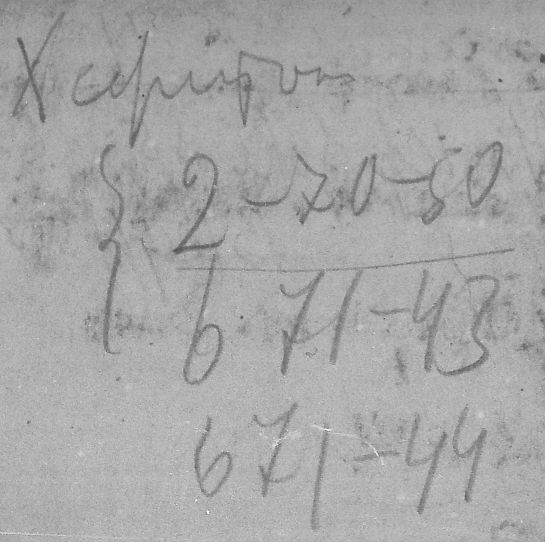 2-70-50
6 71-43
6 71-44